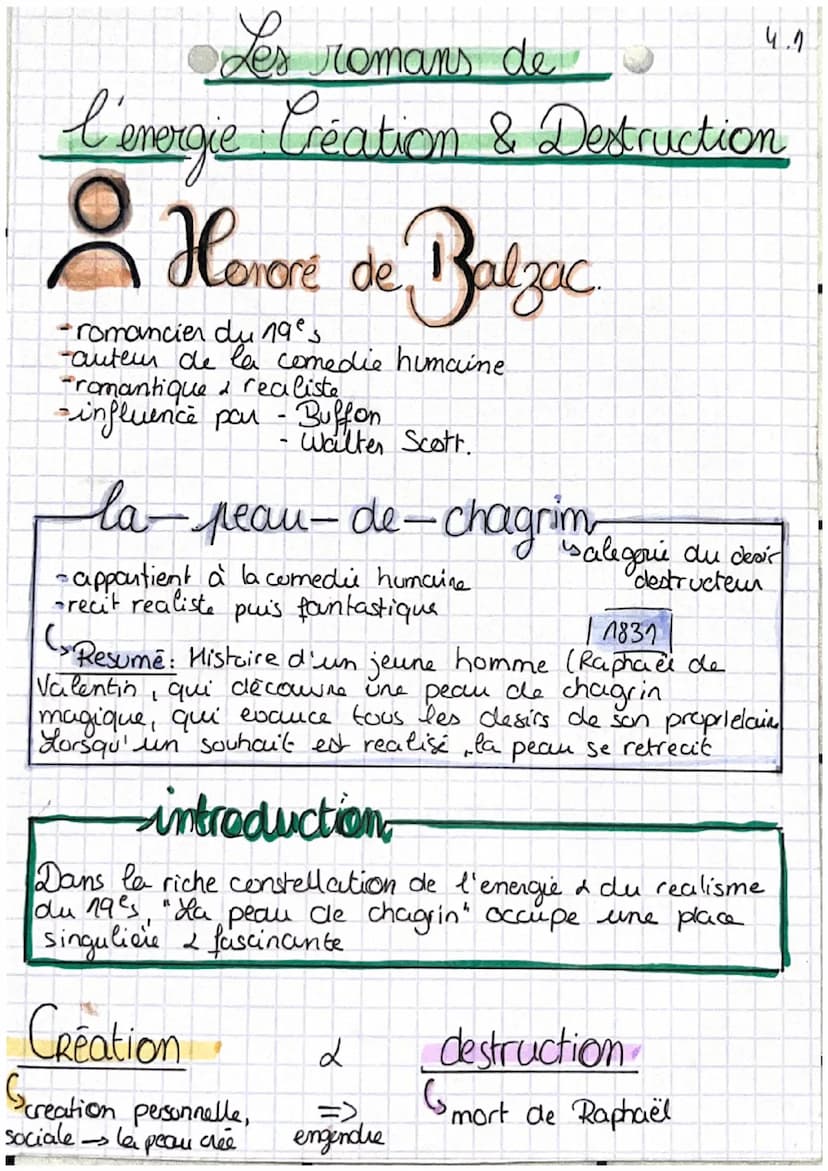 4.1
Les romans de
l'energie : Création & Destruction
Honoré de Balzac.
-romancier du 19e s
-auteur de la comedie humaine
-romantique & realiste
-influencé par - Buffon
- Walter Scott.
la-peau-de-chagrin
↳ alegorie du desir
destructeur
-appartient à la comedie humaine
-recit realiste puis fantastique
1831
↳ Resumé: Histoire d'un jeune homme (Raphaël de
Valentin, qui découvre une peau de chagrin
magique, qui exauce tous les desirs de son proprietaire
Lorsqu'un souhait est realisé, la peau se retrecit
introduction
Dans la riche constellation de l'energie & du realisme
du 19e s, "La peau de chagrin" occupe une place
singulière & fascinante
Création & destruction
↳ creation personnelle, => ↳ mort de Raphaël
sociale → la peau crée engendre